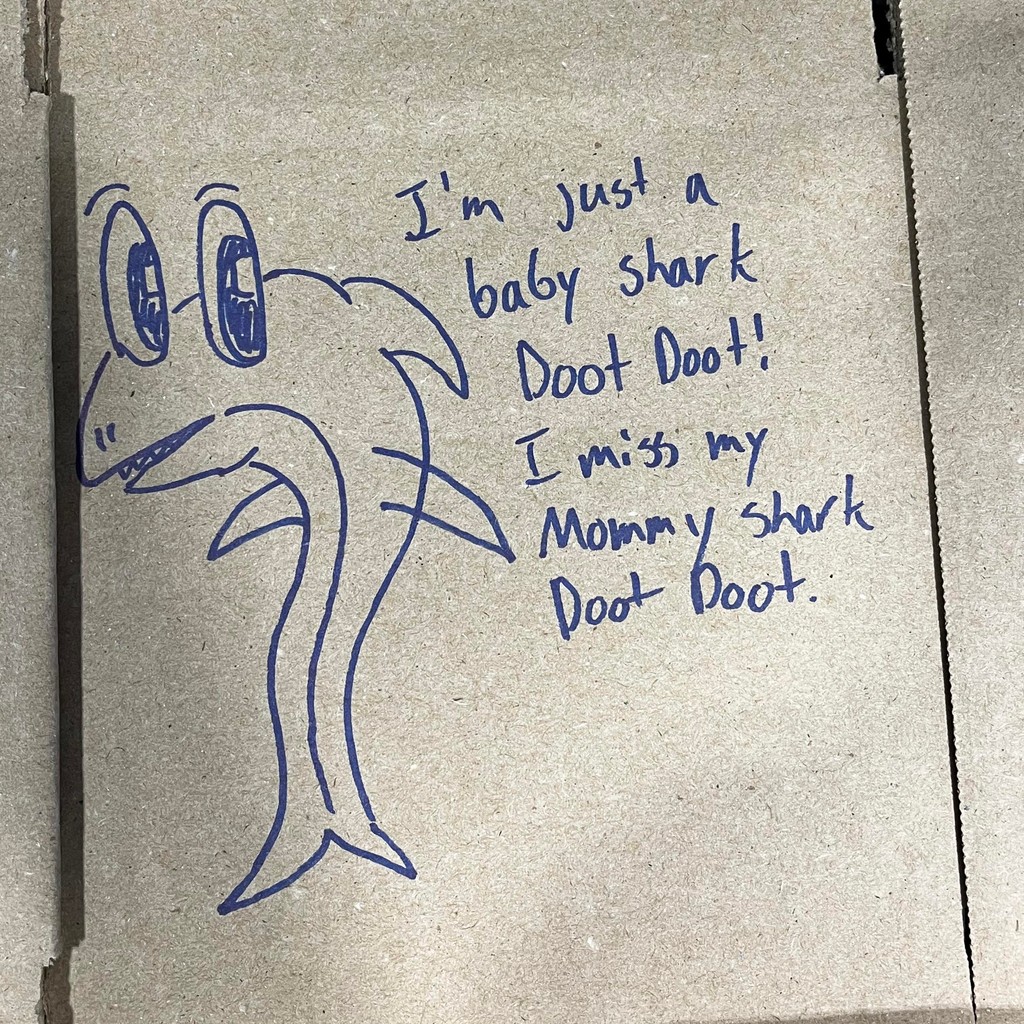 I'm just a
baby shark
Doot Doot!
I miss my
Mommy shark
Doot Doot.